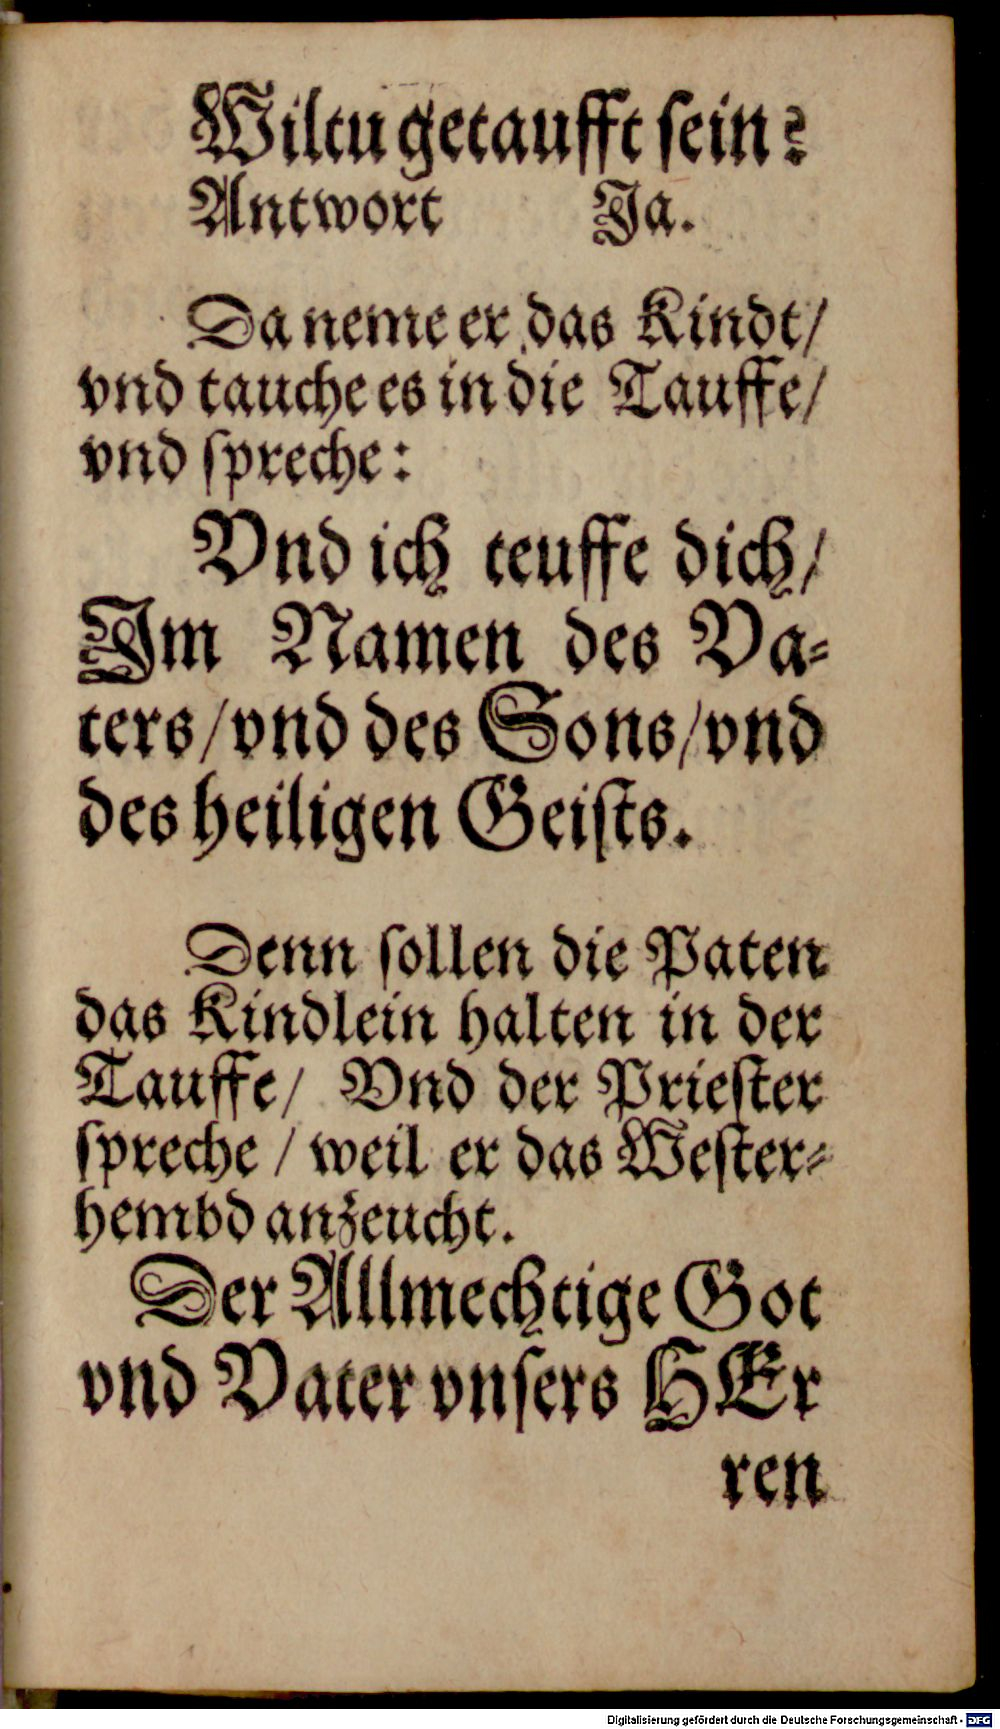 Wiltu getaufft sein?
Antwort Ja.
Da neme er das Kindt/
vnd tauche es in die Tauffe/
vnd spreche:
Vnd ich teuffe dich/
Im Namen des Va⸗
ters/vnd des Sons/vnd
des heiligen Geists.
Denn sollen die Paten
das Kindlein halten in der
Tauffe/ Vnd der Priester
spreche / weil er das Wester⸗
hembd anzeucht.
Der Allmechtige Got
vnd Vater vnsers HEr
ren
Digitalisierung gefördert durch die Deutsche Forschungsgemeinschaft - DFG